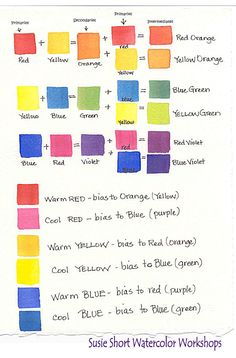 Primaries Secondaries Primaries Intermediates
Red + Yellow = Orange + red = Red Orange
+ Yellow = Yellow Orange
Yellow + Blue = Green + blue = Blue Green
+ Yellow = Yellow Green
Blue + Red = Violet + Red = Red Violet
+ Blue = Blue Violet
Warm RED - bias to Orange (Yellow)
Cool RED - bias to Blue (purple)
Warm YELLOW - bias to Red (orange)
Cool YELLOW - bias to Blue (green)
Warm BLUE - bias to Red (purple)
Cool BLUE - bias to Blue (green)
Susie Short Watercolor Workshops